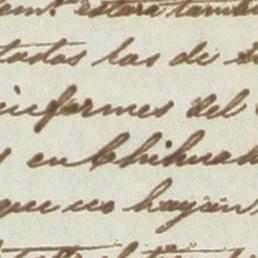 estará tambié
todas las de
informes del
en Chihuah
que no hayan